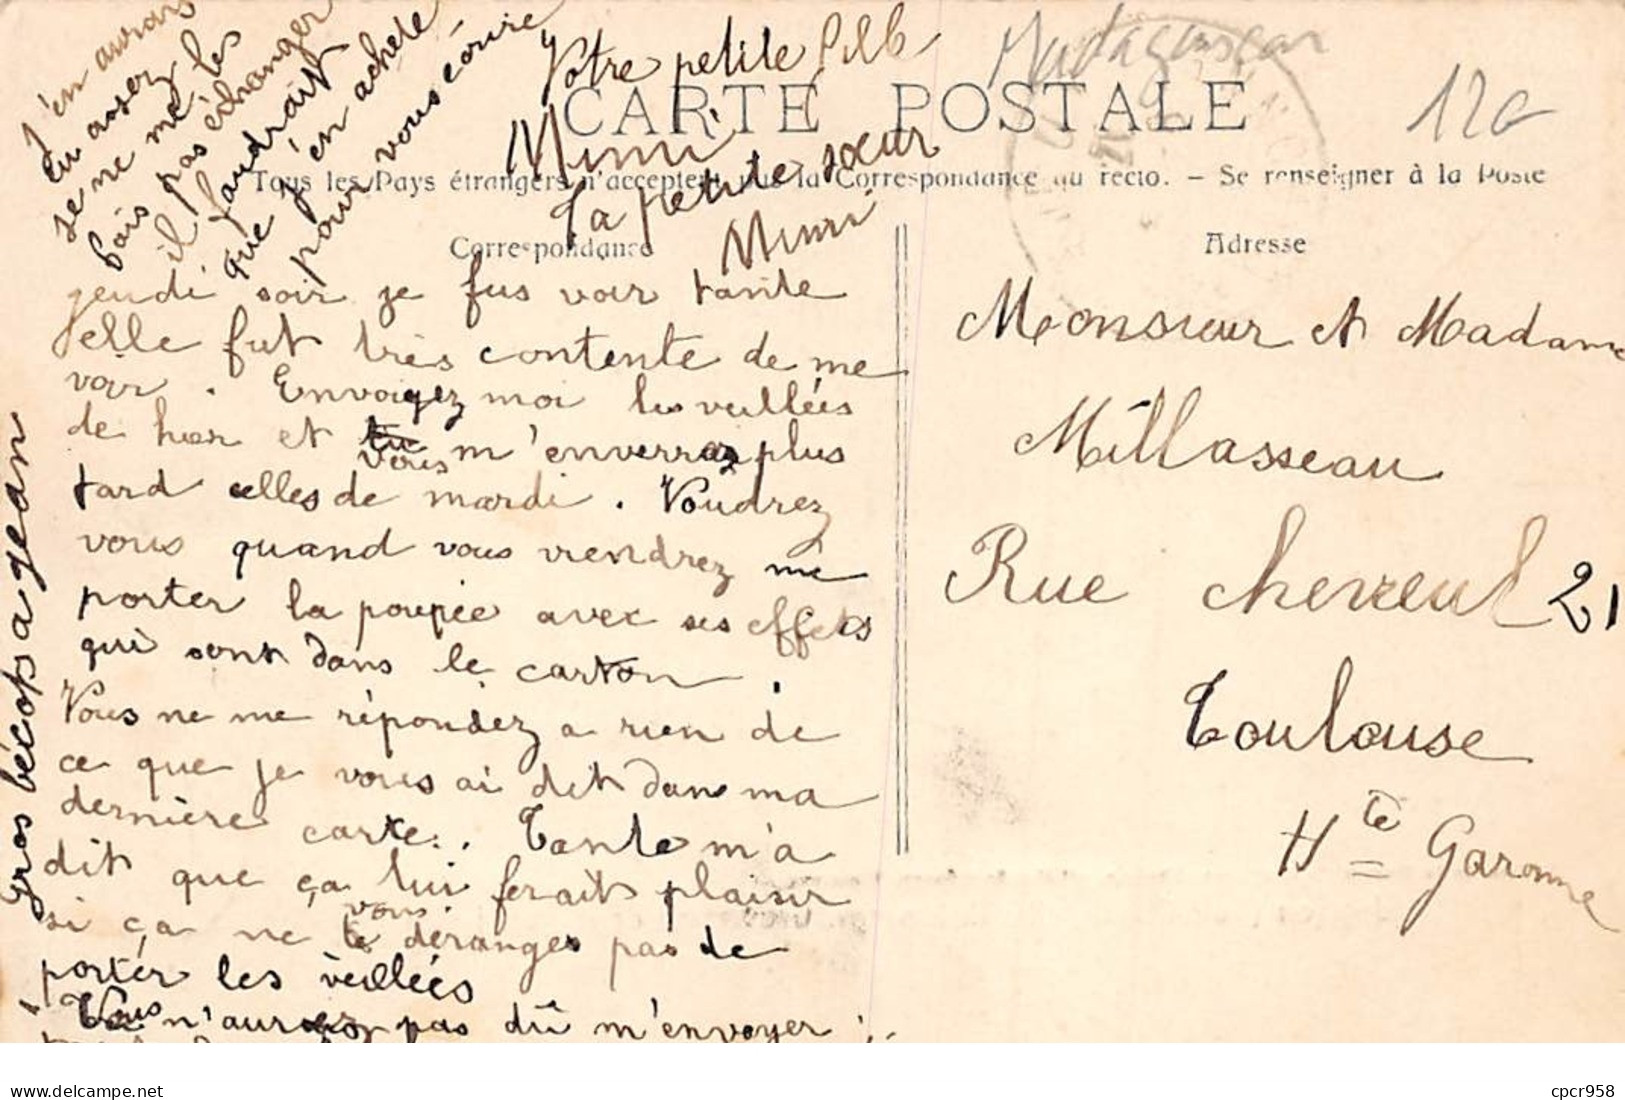 j'en aurai
eu assez
je ne me les
fais pas échanger
il faudrait
que j'en achete
pour vous écrire
Votre petite fille
Mimi
Ta petite sœur
Mimi
Madagascar
12e
CARTE POSTALE
Tous les Pays étrangers n'acceptent pas la Correspondance au recto. – Se renseigner à la Poste
Correspondance
Adresse
jeudi soir je fus voir tante
elle fut très contente de me
voir. Envoyez moi les veillées
de hier et tu vous m'enverraz plus
tard celles de mardi. Voudrez
vous quand vous viendrez me
porter la poupée avec ses effets
qui sont dans le carton.
Vous ne me répondez a rien de
ce que je vous ai dit dans ma
dernière carte. Tante m'a
dit que ça lui ferait plaisir
si ça ne te vous déranges pas de
porter les veillées
Vous n'auriez pas dû m'envoyer
Gros bécots a jean
Monsieur et Madame
Millasseau
Rue chevreul 21
Toulouse
Hte Garonne
cpcr958